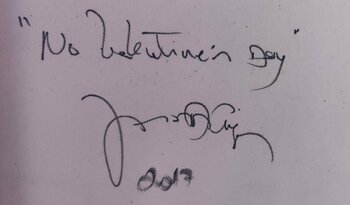 "No Valentine's Day"
2017